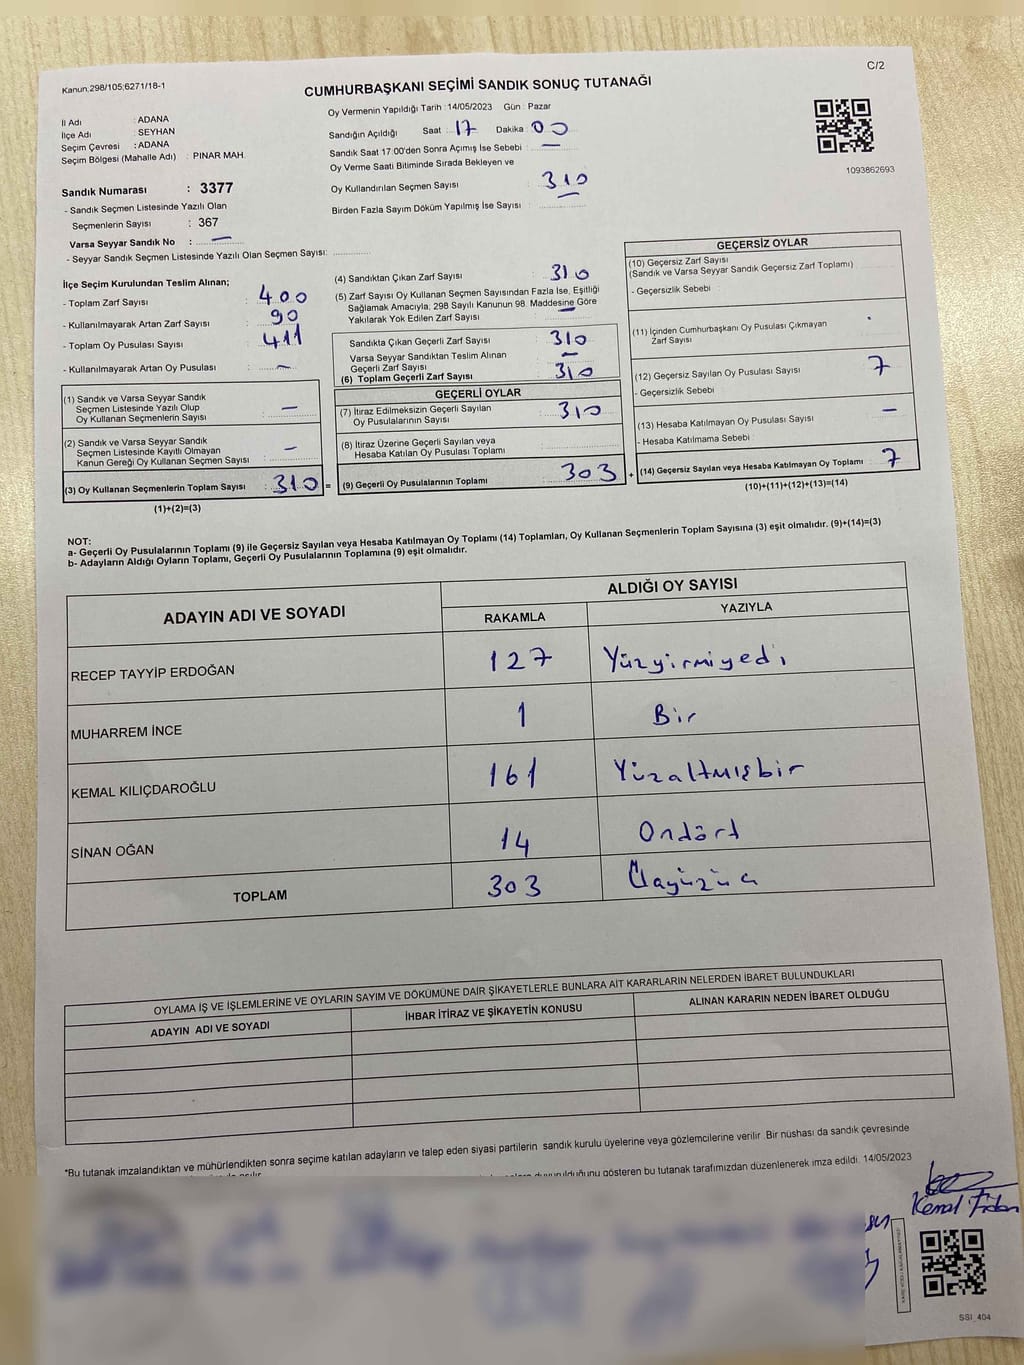 Kanun.298/105;6271/18-1
C/2
CUMHURBAŞKANI SEÇİMİ SANDIK SONUÇ TUTANAĞI
Oy Vermenin Yapıldığı Tarih : 14/05/2023 Gün : Pazar
İl Adı : ADANA
İlçe Adı : SEYHAN
Seçim Çevresi : ADANA
Seçim Bölgesi (Mahalle Adı) : PINAR MAH.
Sandığın Açıldığı Saat 17 Dakika : 00
Sandık Saat 17:00'den Sonra Açımış İse Sebebi : —
Oy Verme Saati Bitiminde Sırada Bekleyen ve
Oy Kullandırılan Seçmen Sayısı : 310
Birden Fazla Sayım Döküm Yapılmış İse Sayısı : —
1093862693
Sandık Numarası : 3377
- Sandık Seçmen Listesinde Yazılı Olan
Seçmenlerin Sayısı : 367
Varsa Seyyar Sandık No : —
- Seyyar Sandık Seçmen Listesinde Yazılı Olan Seçmen Sayısı:
İlçe Seçim Kurulundan Teslim Alınan;
- Toplam Zarf Sayısı : 400
- Kullanılmayarak Artan Zarf Sayısı : 90
- Toplam Oy Pusulası Sayısı : 411
- Kullanılmayarak Artan Oy Pusulası : —
(1) Sandık ve Varsa Seyyar Sandık
Seçmen Listesinde Yazılı Olup
Oy Kullanan Seçmenlerin Sayısı : —
(2) Sandık ve Varsa Seyyar Sandık
Seçmen Listesinde Kayıtlı Olmayan
Kanun Gereği Oy Kullanan Seçmen Sayısı : —
(3) Oy Kullanan Seçmenlerin Toplam Sayısı : 310 =
(1)+(2)=(3)
(4) Sandıktan Çıkan Zarf Sayısı : 310
(5) Zarf Sayısı Oy Kullanan Seçmen Sayısından Fazla İse, Eşitliği
Sağlamak Amacıyla, 298 Sayılı Kanunun 98. Maddesine Göre
Yakılarak Yok Edilen Zarf Sayısı : —
Sandıkta Çıkan Geçerli Zarf Sayısı : 310
Varsa Seyyar Sandıktan Teslim Alınan
Geçerli Zarf Sayısı : —
(6) Toplam Geçerli Zarf Sayısı : 310
GEÇERLİ OYLAR
(7) İtiraz Edilmeksizin Geçerli Sayılan
Oy Pusulalarının Sayısı : 310
(8) İtiraz Üzerine Geçerli Sayılan veya
Hesaba Katılan Oy Pusulası Toplamı :
(9) Geçerli Oy Pusulalarının Toplamı : 303 +
GEÇERSİZ OYLAR
(10) Geçersiz Zarf Sayısı
(Sandık ve Varsa Seyyar Sandık Geçersiz Zarf Toplamı)
- Geçersizlik Sebebi :
(11) İçinden Cumhurbaşkanı Oy Pusulası Çıkmayan
Zarf Sayısı
(12) Geçersiz Sayılan Oy Pusulası Sayısı 7
- Geçersizlik Sebebi :
(13) Hesaba Katılmayan Oy Pusulası Sayısı —
- Hesaba Katılmama Sebebi :
(14) Geçersiz Sayılan veya Hesaba Katılmayan Oy Toplamı 7
(10)+(11)+(12)+(13)=(14)
NOT:
a- Geçerli Oy Pusulalarının Toplamı (9) ile Geçersiz Sayılan veya Hesaba Katılmayan Oy Toplamı (14) Toplamları, Oy Kullanan Seçmenlerin Toplam Sayısına (3) eşit olmalıdır. (9)+(14)=(3)
b- Adayların Aldığı Oyların Toplamı, Geçerli Oy Pusulalarının Toplamına (9) eşit olmalıdır.
ADAYIN ADI VE SOYADI
ALDIĞI OY SAYISI
RAKAMLA YAZIYLA
RECEP TAYYİP ERDOĞAN 127 Yüzyirmiyedi
MUHARREM İNCE 1 Bir
KEMAL KILIÇDAROĞLU 161 Yüzaltmışbir
SİNAN OĞAN 14 Ondört
TOPLAM 303 Üçyüzüç
OYLAMA İŞ VE İŞLEMLERİNE VE OYLARIN SAYIM VE DÖKÜMÜNE DAİR ŞİKAYETLERLE BUNLARA AİT KARARLARIN NELERDEN İBARET BULUNDUKLARI
ADAYIN ADI VE SOYADI İHBAR İTİRAZ VE ŞİKAYETİN KONUSU ALINAN KARARIN NEDEN İBARET OLDUĞU
*Bu tutanak imzalandıktan ve mühürlendikten sonra seçime katılan adayların ve talep eden siyasi partilerin sandık kurulu üyelerine veya gözlemcilerine verilir .Bir nushası da sandık çevresinde
duyurulduğunu gösteren bu tutanak tarafımızdan düzenlenerek imza edildi. 14/05/2023
Kemal
SSI_404